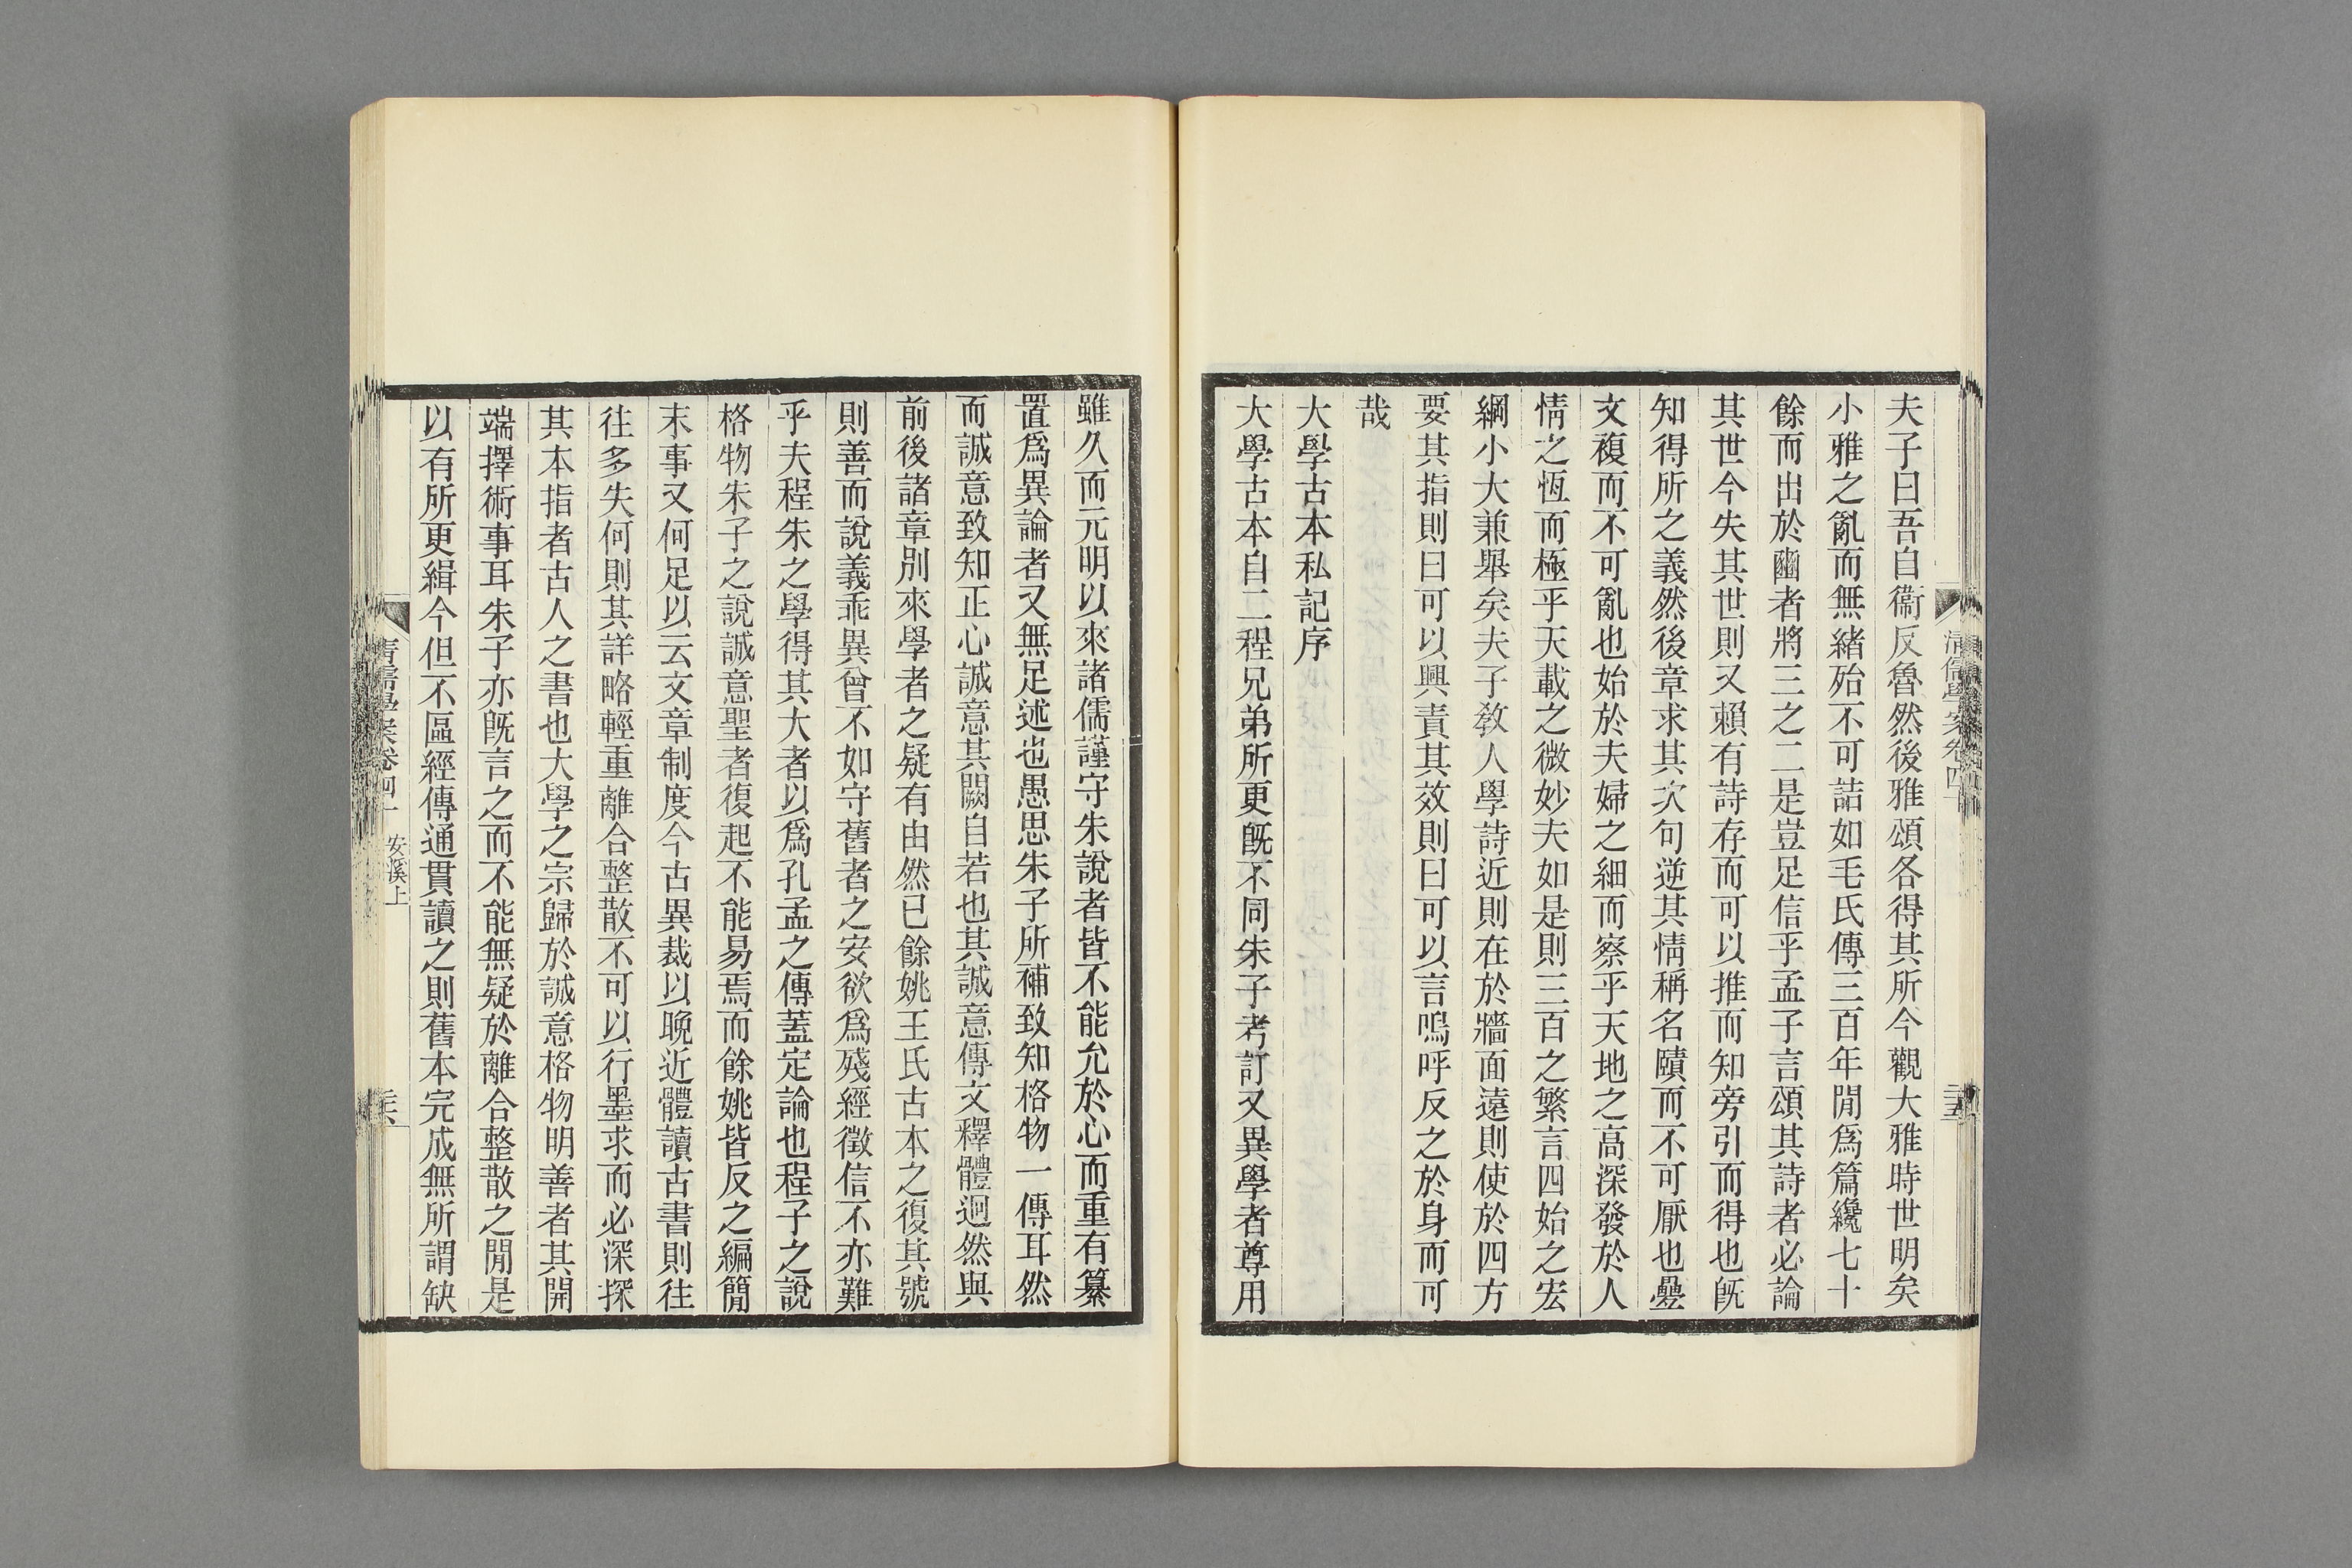 夫子曰吾自衞反魯然後雅頌各得其所今觀大雅時世明矣
小雅之亂而無緒殆不可詰如毛氏傳三百年閒爲篇纔七十
餘而出於豳者將三之二是豈足信乎孟子言頌其詩者必論
其世今失其世則又賴有詩存而可以推而知旁引而得也旣
知得所之義然後章求其次句逆其情稱名賾而不可厭也疊
文複而不可亂也始於夫婦之細而察乎天地之高深發於人
情之恆而極乎天載之微妙夫如是則三百之繁言四始之宏
綱小大兼舉矣夫子敎人學詩近則在於牆面遠則使於四方
要其指則曰可以興責其效則曰可以言嗚呼反之於身而可
哉
大學古本私記序
大學古本自二程兄弟所更旣不同朱子考訂又異學者尊用
清儒學案卷四十
三五
雖久而元明以來諸儒謹守朱說者皆不能允於心而重有纂
置爲異論者又無足述也愚思朱子所補致知格物一傳耳然
而誠意致知正心誠意其闕自若也其誠意傳文釋體迥然與
前後諸章別來學者之疑有由然已餘姚王氏古本之復其號
則善而說義乖異曾不如守舊者之安欲爲殘經徵信不亦難
乎夫程朱之學得其大者以爲孔孟之傳蓋定論也程子之說
格物朱子之說誠意聖者復起不能易焉而餘姚皆反之編簡
末事又何足以云文章制度今古異裁以晚近體讀古書則往
往多失何則其詳略輕重離合整散不可以行墨求而必深探
其本指者古人之書也大學之宗歸於誠意格物明善者其開
端擇術事耳朱子亦旣言之而不能無疑於離合整散之閒是
以有所更緝今但不區經傳通貫讀之則舊本完成無所謂缺
清儒學案卷四十 安溪上
三六